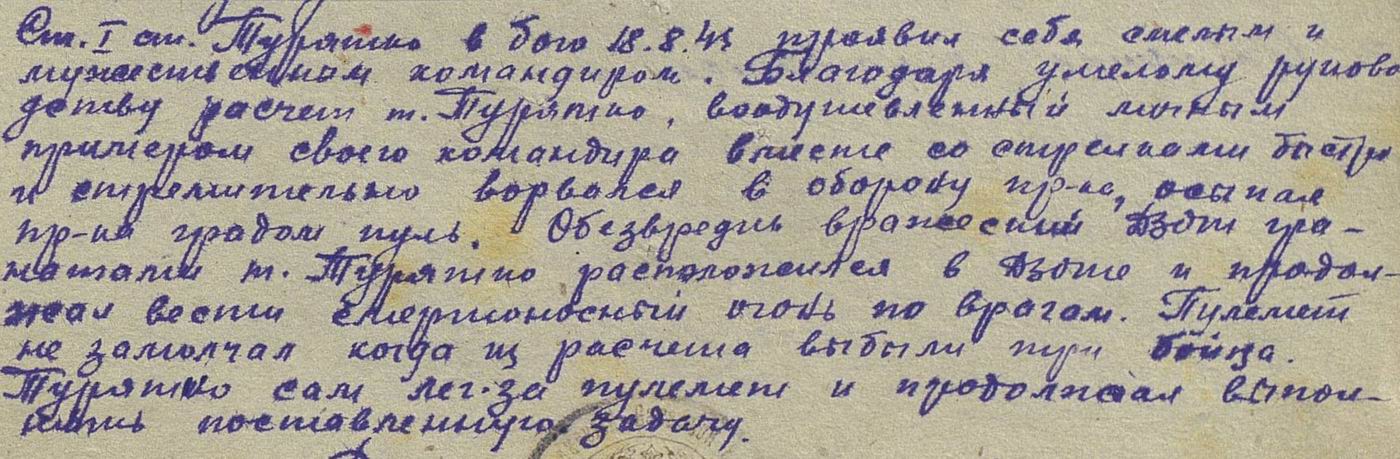 Ст. I ст. Турятко в бою 18.8.43 проявил себя смелым и
мужественном командиром. Благодаря умелому руково
дству расчет т. Турятко, воодушевленный личным
примером своего командира вместе со стрелками быстро
и стремительно ворвался в оборону пр-ка, осыпая
пр-ка градом пуль. Обезвредив вражеский дзот гра-
натами т. Турятко расположился в дзоте и продол-
жал вести смертоносный огонь по врагам. Пулемет
не замолчал когда из расчета выбыли три бойца.
Турятко сам лег за пулемет и продолжал выпол-
нять поставленную задачу.